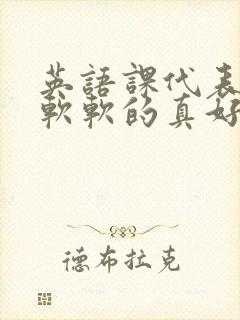 英語課代表
軟軟的真好
德布拉克